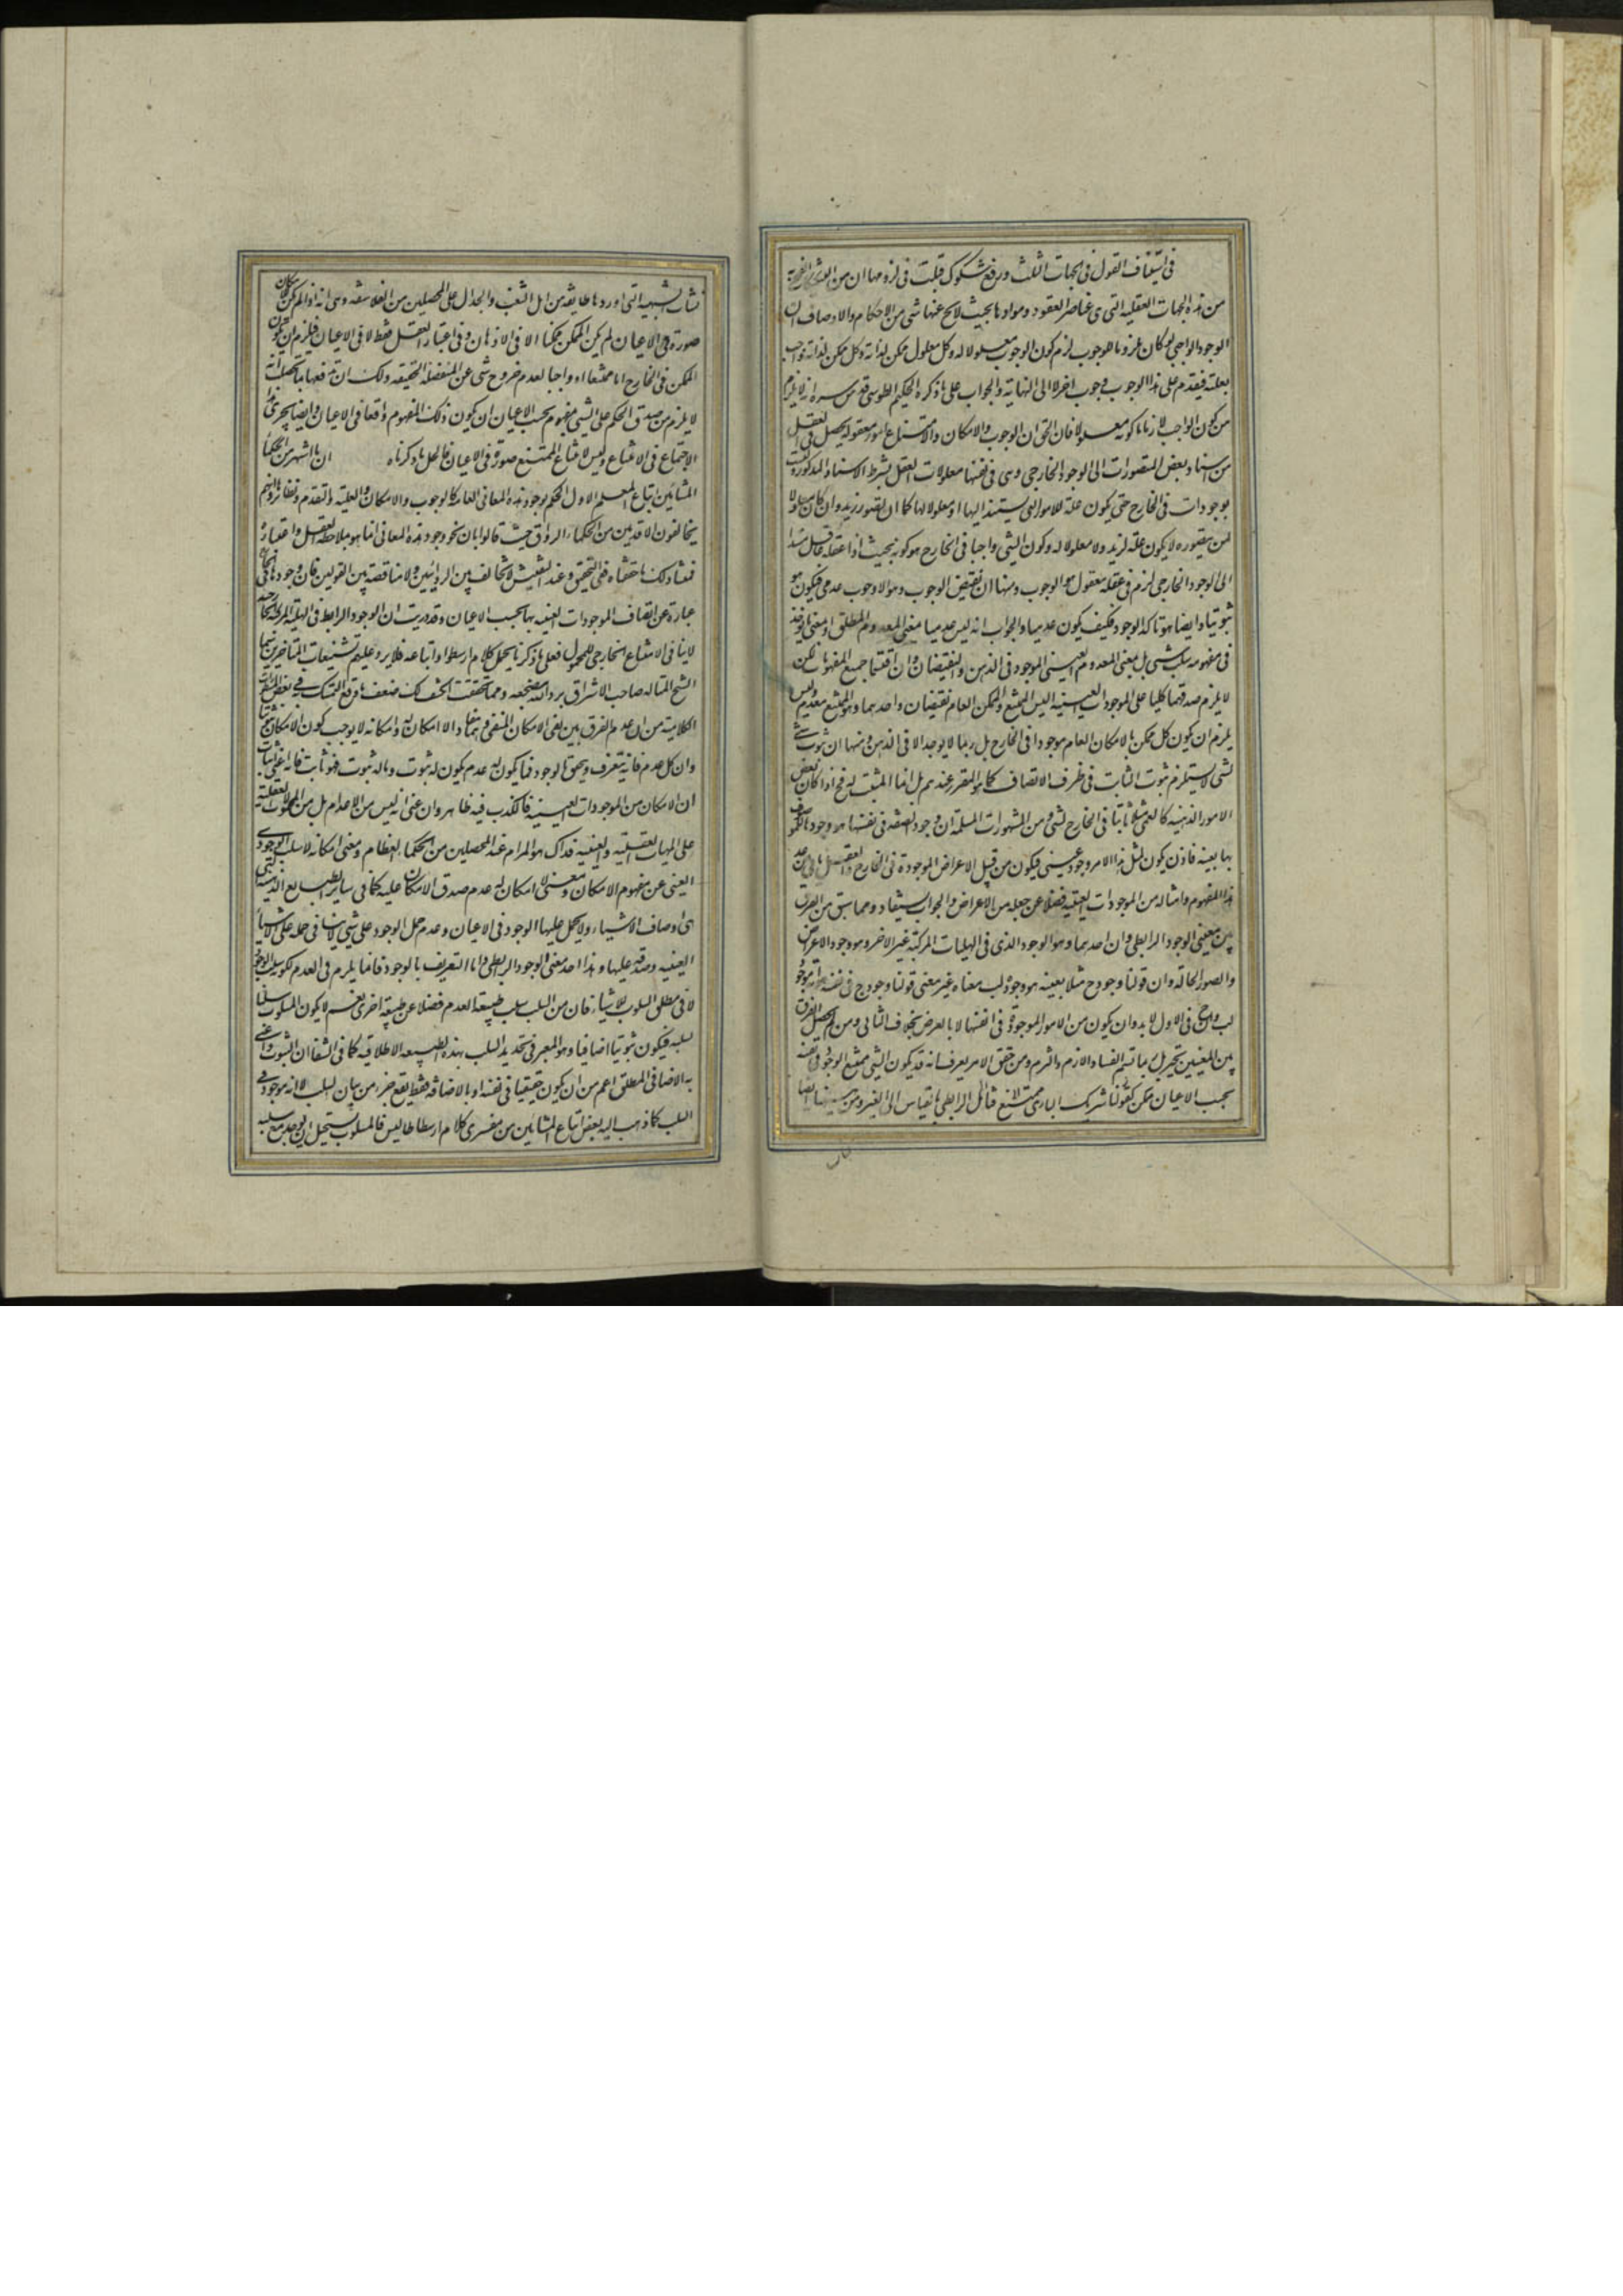 في استيناف القول في الجهات الثلث ودفع شكوك قيلت في لزومها ان من
من هذه الجهات العقلية التي هي عناصر العقود وموادها بحيث لا يخرج عنها شي من الاحكام والاوصاف ان
الوجود الواجبي لو كان ملزوما لوجوب لزم كون الوجوب معلولا له وكل معلول ممكن لذاته وكل ممكن لذاته واجب
بعلته فيتقدم على هذا الوجوب وجوب اخر لا الى النهاية والجواب على ما ذكره الحكيم الطوسي قدس سره انه لا يلزم
من كون الواجب لازما كونه معلولا فان الحق ان الوجوب والامكان والامتناع امور معقولة يحصل في العقل
من اسناد بعض المتصورات الى الوجود الخارجي وهي في نفسها معلولات العقل بشرط الاسناد المذكور وليست
بموجودات في الخارج حتى يكون علة للامور التي يستند اليها او معلولا لها كما ان تصور زيد وان كان معلولا
لمن يتصوره لا يكون علة لزيد ولا معلولا له وكون الشي واجبا في الخارج هو كونه بحيث اذا عقله عاقل مسندا
الى الوجود الخارجي لزم في عقله معقول هو الوجوب ومنها ان نقيض الوجوب وهو اللاوجوب عدمي فيكون هو
ثبوتيا وايضا هو تاكد الوجود فكيف يكون عدميا والجواب انه ليس عدميا بمعنى المعدوم المطلق او بمعنى ما يوخذ
في مفهومه سلب شي بل بمعنى المعدوم العيني الموجود في الذهن والنقيضان وان اقتسما جميع المفهومات لكن
لا يلزم صدقهما كليا على الموجودات العينية اليس الممتنع والممكن العام نقيضان واحدهما وهو الممتنع معدوم وليس
يلزم ان يكون كل ممكن بالامكان العام موجودا في الخارج بل ربما لا يوجد الا في الذهن ومنها ان ثبوت شي
لشي لا يستلزم ثبوت الثابت في ظرف الاتصاف كما هو المقرر عندهم بل انما المثبت له فح اذا كان بعض
الامور الذهنية كالعمى مثلا ثابتا في الخارج لشي ومن المشهورات المسلمة ان وجود الصفة في نفسها هو وجودها للموصوف
بها بعينه فاذن يكون لمثل هذا الامر وجود عيني فيكون من قبيل الاعراض الموجودة في الخارج والعقل يابى عن عد
هذا المفهوم وامثاله من الموجودات العينية فضلا عن جعله من الاعراض والجواب يستفاد ومما سبق من الفرق
بين معنيي الوجود الرابطي وان احدهما وهو الوجود الذي في الهليات المركبة غير الاخر وهو وجود الاعراض
والصور الحالة وان قولنا وجود ج مثلا بعينه هو وجوده لب معناه غير معنى قولنا وجود ج في نفسه هو انه موجود
لب وان ج في الاول لا بد وان يكون من الامور الموجودة في انفسها لا بالعرض بخلاف الثاني ومن لم يحصل الفرق
بين المعنيين تحير بل ربما تسم الفساد والازم والتزم ومن حقق الامر يعرف انه قد يكون الشي ممتنع الوجود في نفسه
بحسب الاعيان ممكن كقولنا شريك الباري ممتنع الرابطي بالقياس الى الغير ومن
نشات الشبهة التي اوردها طايفة من اهل الشغب والجدال على المحصلين من الفلاسفة وهي انه اذا لم يكن للامكان
صورة في الاعيان لم يكن الممكن ممكنا الا في الاذهان وفي اعتبار العقل فقط لا في الاعيان فيلزم ان يكون
الممكن في الخارج اما ممتنعا او واجبا لعدم خروج شي عن المنفصلة الحقيقه ولك ان تدفعها بما تحصلت انه
لا يلزم من صدق الحكم على الشي بمفهوم بحسب الاعيان ان يكون ذلك المفهوم واقعا في الاعيان وايضا يجري هذا
الاحتجاج في الامتناع وليس لامتناع الممتنع صورة في الاعيان فالحل ما ذكرناه ان ما اشتهر من الحكماء
المشائين اتباع المعلم الاول الحكم بوجود هذه المعاني العامة كالوجوب والامكان والعلية والتقدم ونظائرها وانهم
يخالفون الاقدمين من الحكماء الرواق حيث قالوا بان نحو وجود هذه المعاني انما هو بملاحظة العقل واعتباره
فمنشا ذلك ما حققناه ففي التحقيق وعند التفتيش لا تخالف بين الرايين ولا مناقضة بين القولين فان وجودها في الخارج
عبارة عن اتصاف الموجودات العينيه بها بحسب الاعيان وقد دريت ان الوجود الرابط في الهلية المركبة الخارجية
لا ينافي الامتناع الخارجي للمحمول فعلى ما ذكرنا يحمل كلام ارسطو واتباعه فلا يرد عليهم تشنيعات المتاخرين سيما
الشيخ المتاله صاحب الاشراق برد الله مضجعه ومما تحققت انكشف لك ضعف ما وقع التمسك به في بعض المسفورات
الكلامية من ان عدم الفرق بين نفي الامكان المنفي وهما لا امكان له وامكانه لا يوجب كون الامكان ثبوتيا
وان كل عدم فانه يتعرف ويتحقق بالوجود فما يكون له عدم يكون له ثبوت وما له ثبوت فهو ثابت فانه اعني اثبات
ان الامكان من الموجودات العينية فالكذب فيه ظاهر وان عنى انه ليس من الاعدام بل من المحمولات العقلية
على المهيات العقلية والعينيه فذاك هو المرام عند المحصلين من الحكماء العظام ومعنى امكانه لا سلب الوجود
العيني عن مفهوم الامكان ومعنى لا امكان له عدم صدق الامكان عليه كما في ساير الطبايع الذهنية التي
هي اوصاف الاشياء ولا يحمل عليها الوجود في الاعيان وعدم حمل الوجود على شي لا ينافي حمله على الاشياء
العينيه وصدقه عليها وهذا احد معنى الوجود الرابطي واما التعريف بالوجود فانما يلزم في العدم لكونه سلب الوجود
لا في مطلق السلوب للاشياء فان من السلب سلب طبيعة العدم فضلا عن طبيعة اخرى نعم لا يكون المسلوب سلبا
لسلبه فيكون ثبوتيا اضافيا وهو المعبر في تحديد السلب بهذه الطبيعه الاطلاقيه كما في الشفا ان الثبوت واعني
به الاضافي المطلق اعم من ان يكون حقيقيا في نفسه او بالاضافة فقط يقع جزء من بيان السلب لا انه موجود في
السلب كما ذهب اليه بعض اتباع المشائين من مفسري كلام ارسطاطاليس فالمسلوب يستحيل ان يوجد مع سلبه